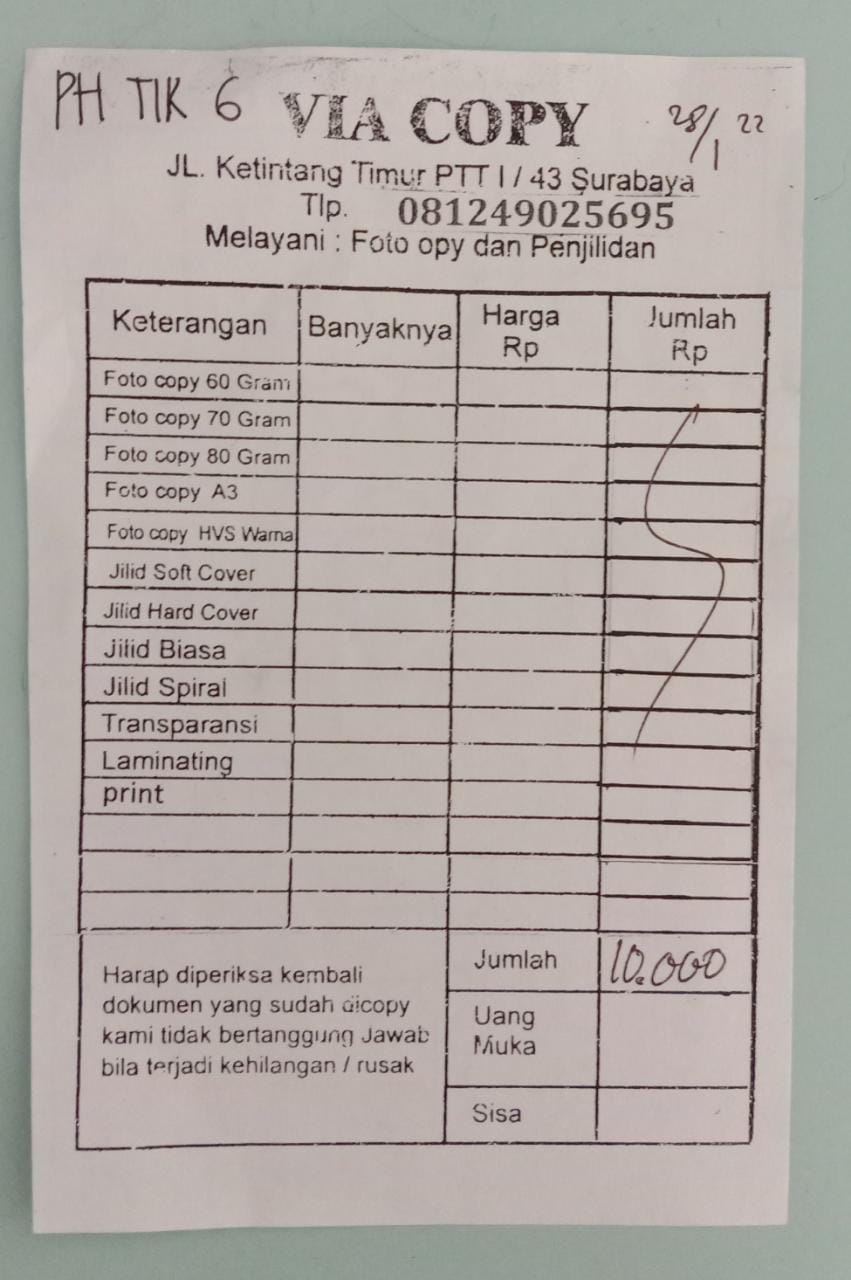 PH TIK 6
VIA COPY
28/1 22
JL. Ketintang Timur PTT I / 43 Surabaya
Tlp. 081249025695
Melayani : Foto opy dan Penjilidan
Keterangan Banyaknya Harga Rp Jumlah Rp
Foto copy 60 Gram
Foto copy 70 Gram
Foto copy 80 Gram
Foto copy A3
Foto copy HVS Warna
Jilid Soft Cover
Jilid Hard Cover
Jilid Biasa
Jilid Spiral
Transparansi
Laminating
print
Jumlah 10.000
Harap diperiksa kembali
dokumen yang sudah dicopy
kami tidak bertanggung Jawab
bila terjadi kehilangan / rusak
Uang
Muka
Sisa